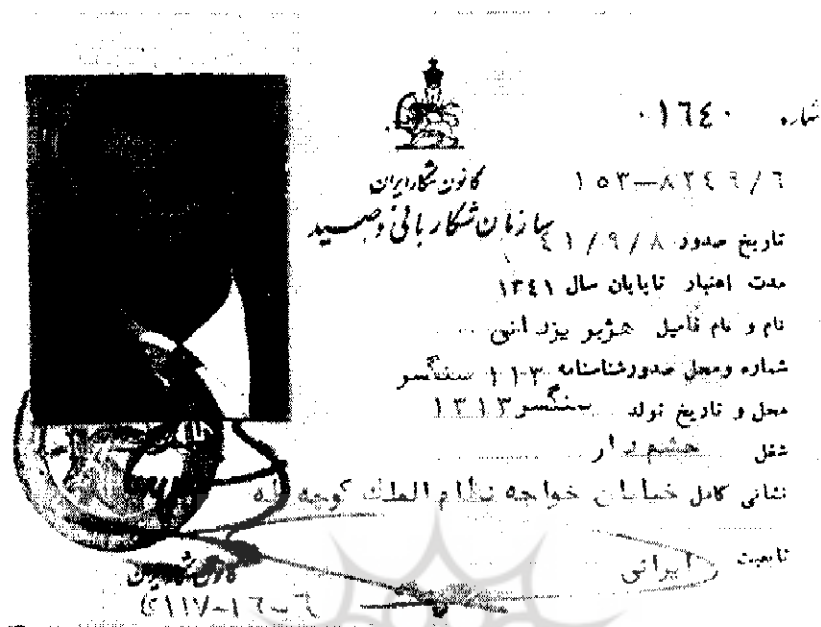 شماره ۰۱٦٤۰
کانون شکار ایران
۱٥۳-۸۲٤۹/٦
سازمان شکاربانی و صید
تاریخ صدور ٤۱/۹/۸
مدت اعتبار تاپایان سال ۱۳٤۱
نام و نام فامیل هژبر یزدانی
شماره ومحل صدورشناسنامه ۱۱۳ سنگسر
محل و تاریخ تولد سنگسر ۱۳۱۳
شغل حشم دار
نشانی کامل خیابان خواجه نظام الملک کوچه
تابعیت ایرانی
کانون شکار ایران